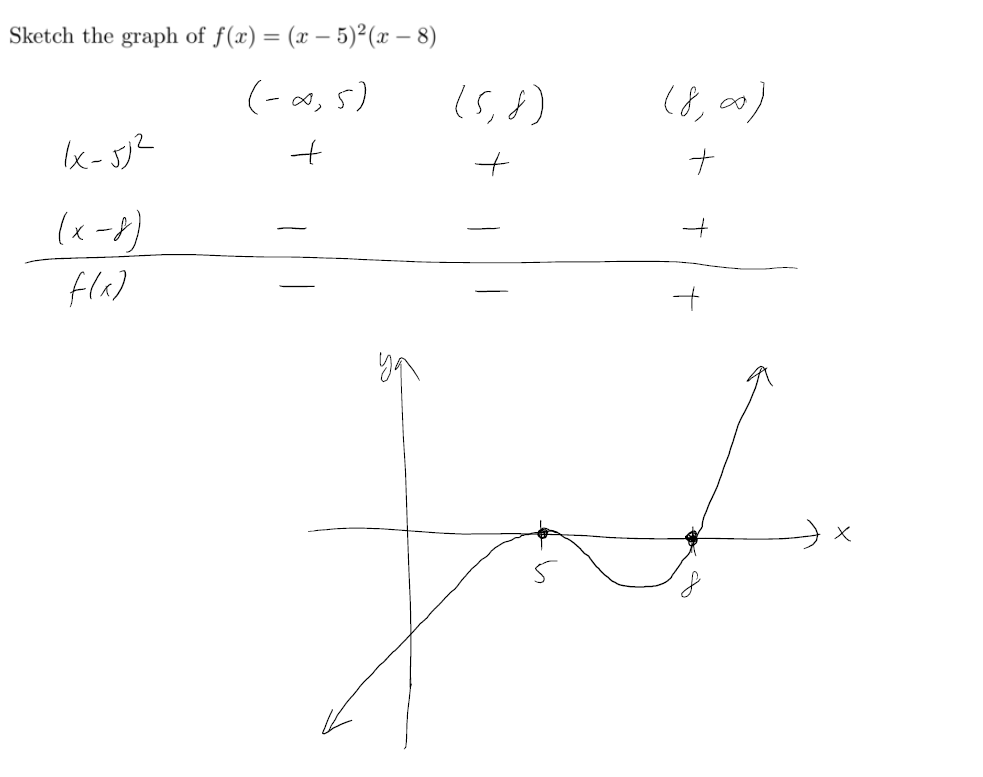 Sketch the graph of f(x) = (x − 5)²(x − 8)
(-∞, 5) (5, 8) (8, ∞)
(x-5)² + + +
(x-8) − − +
f(x) − − +
y
x
5 8